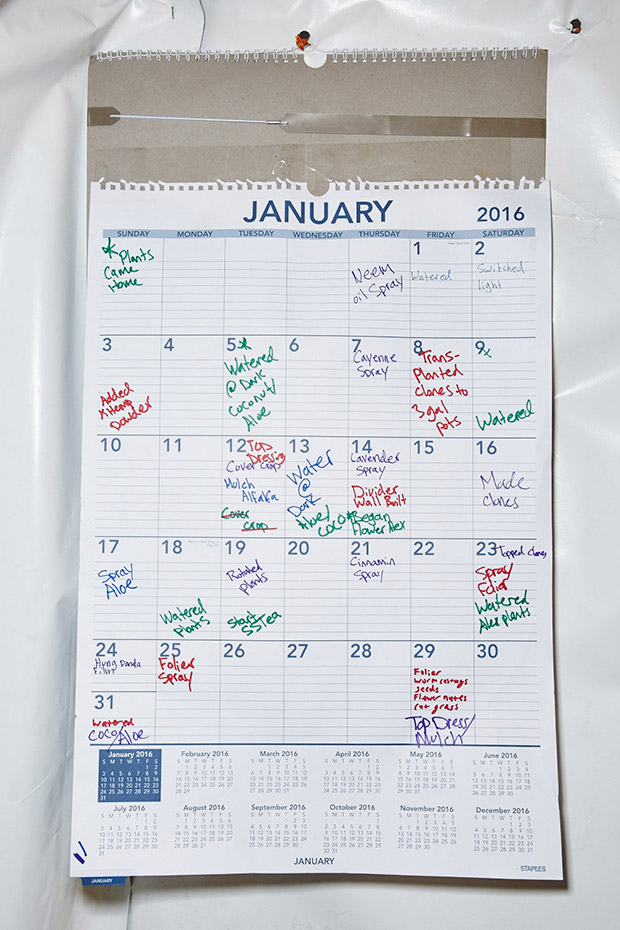 JANUARY 2016
SUNDAY MONDAY TUESDAY WEDNESDAY THURSDAY FRIDAY SATURDAY
* Plants
Came
Home
Neem
oil Spray
1
Watered
2
Switched
light
3
Added
Powder
4
5*
Watered
@ Dark
Coconut/
Aloe
6
7
Cayenne
Spray
8
Trans-
Planted
clones to
3 gal
pots
9x
Watered
10
11
12 Top
Dressing
Cover Crop
Mulch
Alfalfa
Cover
Crop
13
Water
@
Dark
Aloe/
Coco
14
Lavender
Spray
Divider
Wall Built
*Began
Flower Alex
15
16
Made
Clones
17
Spray
Aloe
18
Watered
Plants
19
Rotated
plants
Start
SSTea
20
21
Cinnamin
Spray
22
23 Topped clones
Spray
Folia
Watered
Alex plants
24
Hung Panda
31
Watered
Coco/Aloe
25
Folier
Spray
26
27
28
29
Folier
worm castings
seeds
Flower nutes
cut grass
Top Dress/
Mulch
30
January 2016
February 2016
March 2016
April 2016
May 2016
June 2016
July 2016
August 2016
September 2016
October 2016
November 2016
December 2016
JANUARY
STAPLES
JANUARY